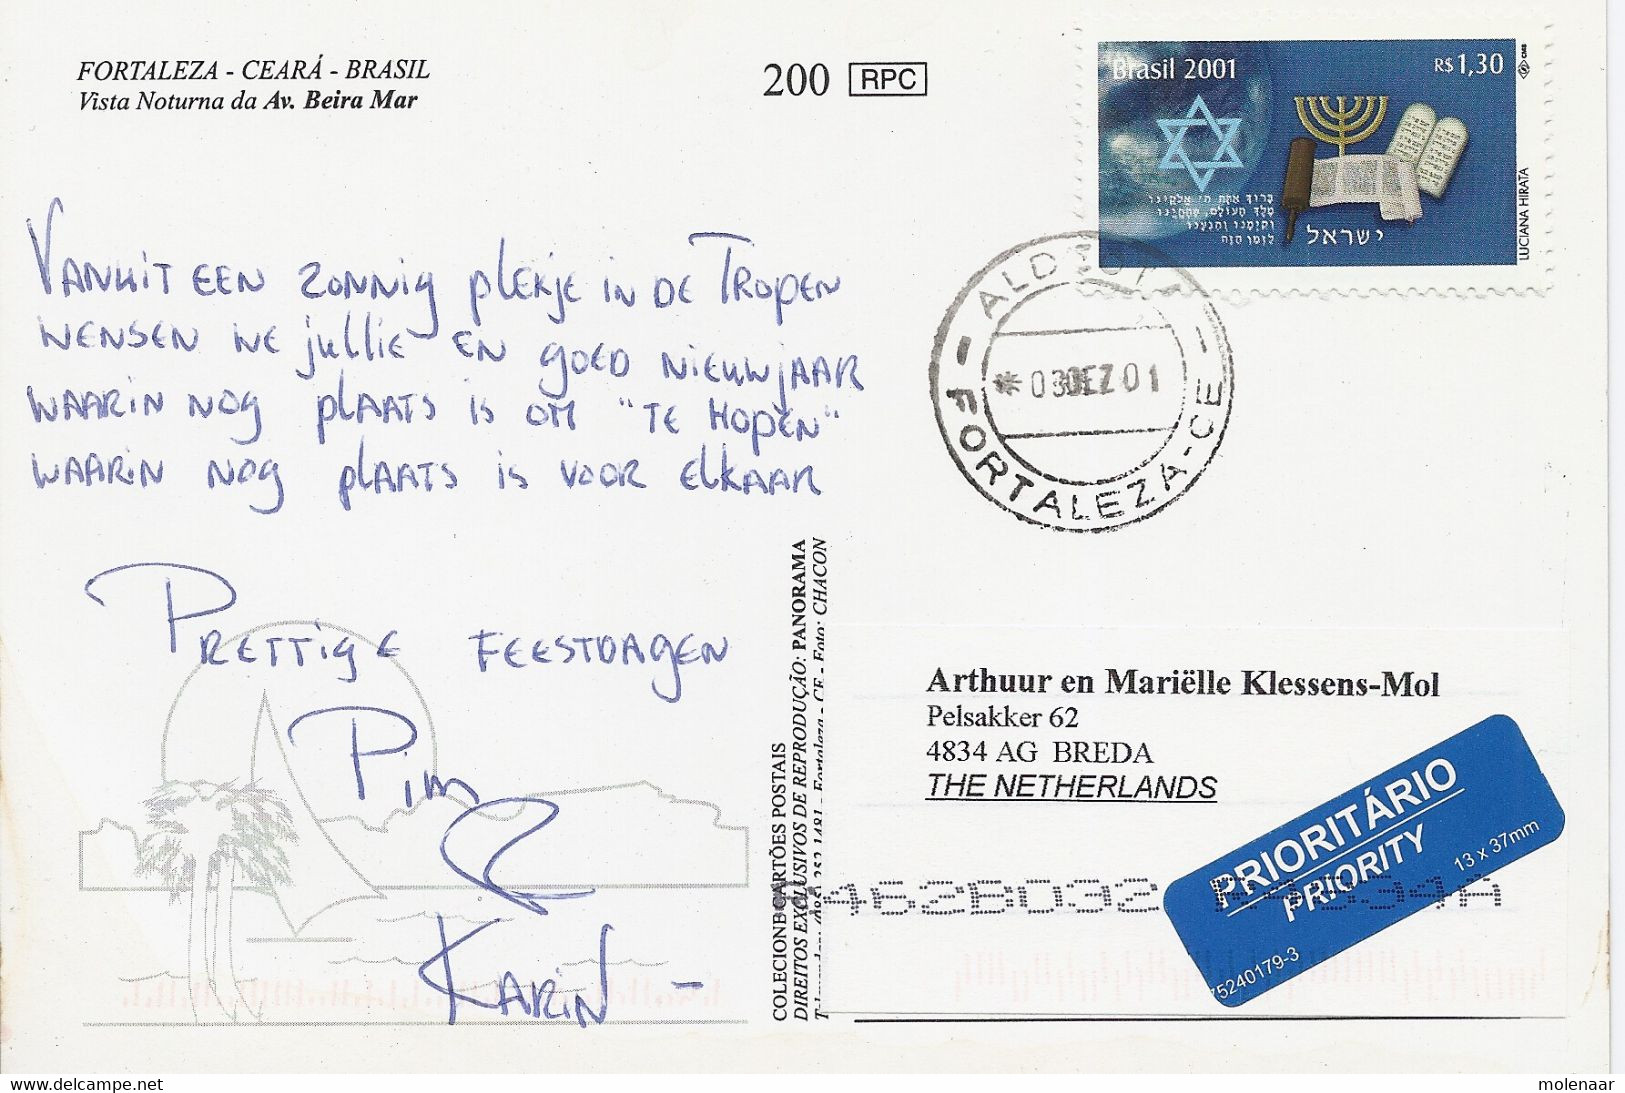 FORTALEZA - CEARÁ - BRASIL
Vista Noturna da Av. Beira Mar
200 RPC
Brasil 2001
R$ 1,30
ישראל
LUCIANA HIRATA
FORTALEZA-CE
03 DEZ 01
VANUIT EEN ZONNIG PLEKJE IN DE TROPEN
WENSEN WE JULLIE EN GOED NIEUWJAAR
WAARIN NOG PLAATS IS OM "TE HOPEN"
WAARIN NOG PLAATS IS VOOR ELKAAR
PRETTIGE FEESTDAGEN
PIM
&
KARIN -
COLECIONE CARTÕES POSTAIS
DIREITOS EXCLUSIVOS DE REPRODUÇÃO: PANORAMA
Fortaleza - CE - Foto: CHACON
Arthuur en Mariëlle Klessens-Mol
Pelsakker 62
4834 AG BREDA
THE NETHERLANDS
PRIORITÁRIO
PRIORITY
13 x 37mm
75240179-3
delcampe.net
molenaar